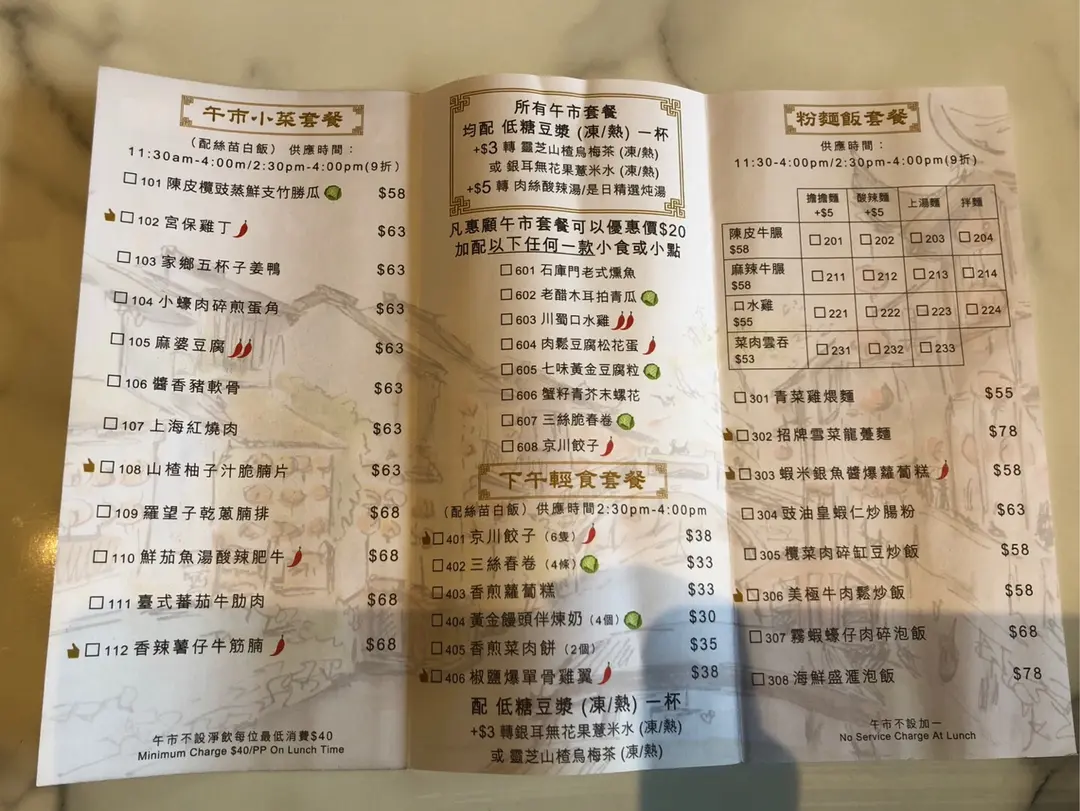 午市小菜套餐
(配絲苗白飯) 供應時間：
11:30am-4:00m/2:30pm-4:00pm(9折)
101 陳皮欖豉蒸鮮支竹勝瓜 $58
102 宮保雞丁 $63
103 家鄉五杯子姜鴨 $63
104 小蠔肉碎煎蛋角 $63
105 麻婆豆腐 $63
106 醬香豬軟骨 $63
107 上海紅燒肉 $63
108 山楂柚子汁脆腩片 $63
109 羅望子乾蔥腩排 $68
110 鮮茄魚湯酸辣肥牛 $68
111 臺式蕃茄牛肋肉 $68
112 香辣薯仔牛筋腩 $68
午市不設淨飲每位最低消費$40
Minimum Charge $40/PP On Lunch Time
所有午市套餐
均配 低糖豆漿 (凍/熱) 一杯
+$3 轉 靈芝山楂烏梅茶 (凍/熱)
或 銀耳無花果薏米水 (凍/熱)
+$5 轉 肉絲酸辣湯/是日精選炖湯
凡惠顧午市套餐可以優惠價$20
加配以下任何一款小食或小點
601 石庫門老式燻魚
602 老醋木耳拍青瓜
603 川蜀口水雞
604 肉鬆豆腐松花蛋
605 七味黃金豆腐粒
606 蟹籽青芥末螺花
607 三絲脆春卷
608 京川餃子
下午輕食套餐
(配絲苗白飯) 供應時間2:30pm-4:00pm
401 京川餃子 (6隻) $38
402 三絲春卷 (4條) $33
403 香煎蘿蔔糕 $33
404 黃金饅頭伴煉奶 (4個) $30
405 香煎菜肉餅 (2個) $35
406 椒鹽爆單骨雞翼 $38
配 低糖豆漿 (凍/熱) 一杯
+$3 轉銀耳無花果薏米水 (凍/熱)
或 靈芝山楂烏梅茶 (凍/熱)
粉麵飯套餐
供應時間：
11:30-4:00pm/2:30pm-4:00pm(9折)
擔擔麵 +$5 酸辣麵 +$5 上湯麵 拌麵
陳皮牛腩 $58 201 202 203 204
麻辣牛腩 $58 211 212 213 214
口水雞 $55 221 222 223 224
菜肉雲吞 $53 231 232 233
301 青菜雞煨麵 $55
302 招牌雪菜龍躉麵 $78
303 蝦米銀魚醬爆蘿蔔糕 $58
304 豉油皇蝦仁炒腸粉 $63
305 欖菜肉碎缸豆炒飯 $58
306 美極牛肉鬆炒飯 $58
307 霧蝦蠔仔肉碎泡飯 $68
308 海鮮盛滙泡飯 $78
午市不設加一
No Service Charge At Lunch